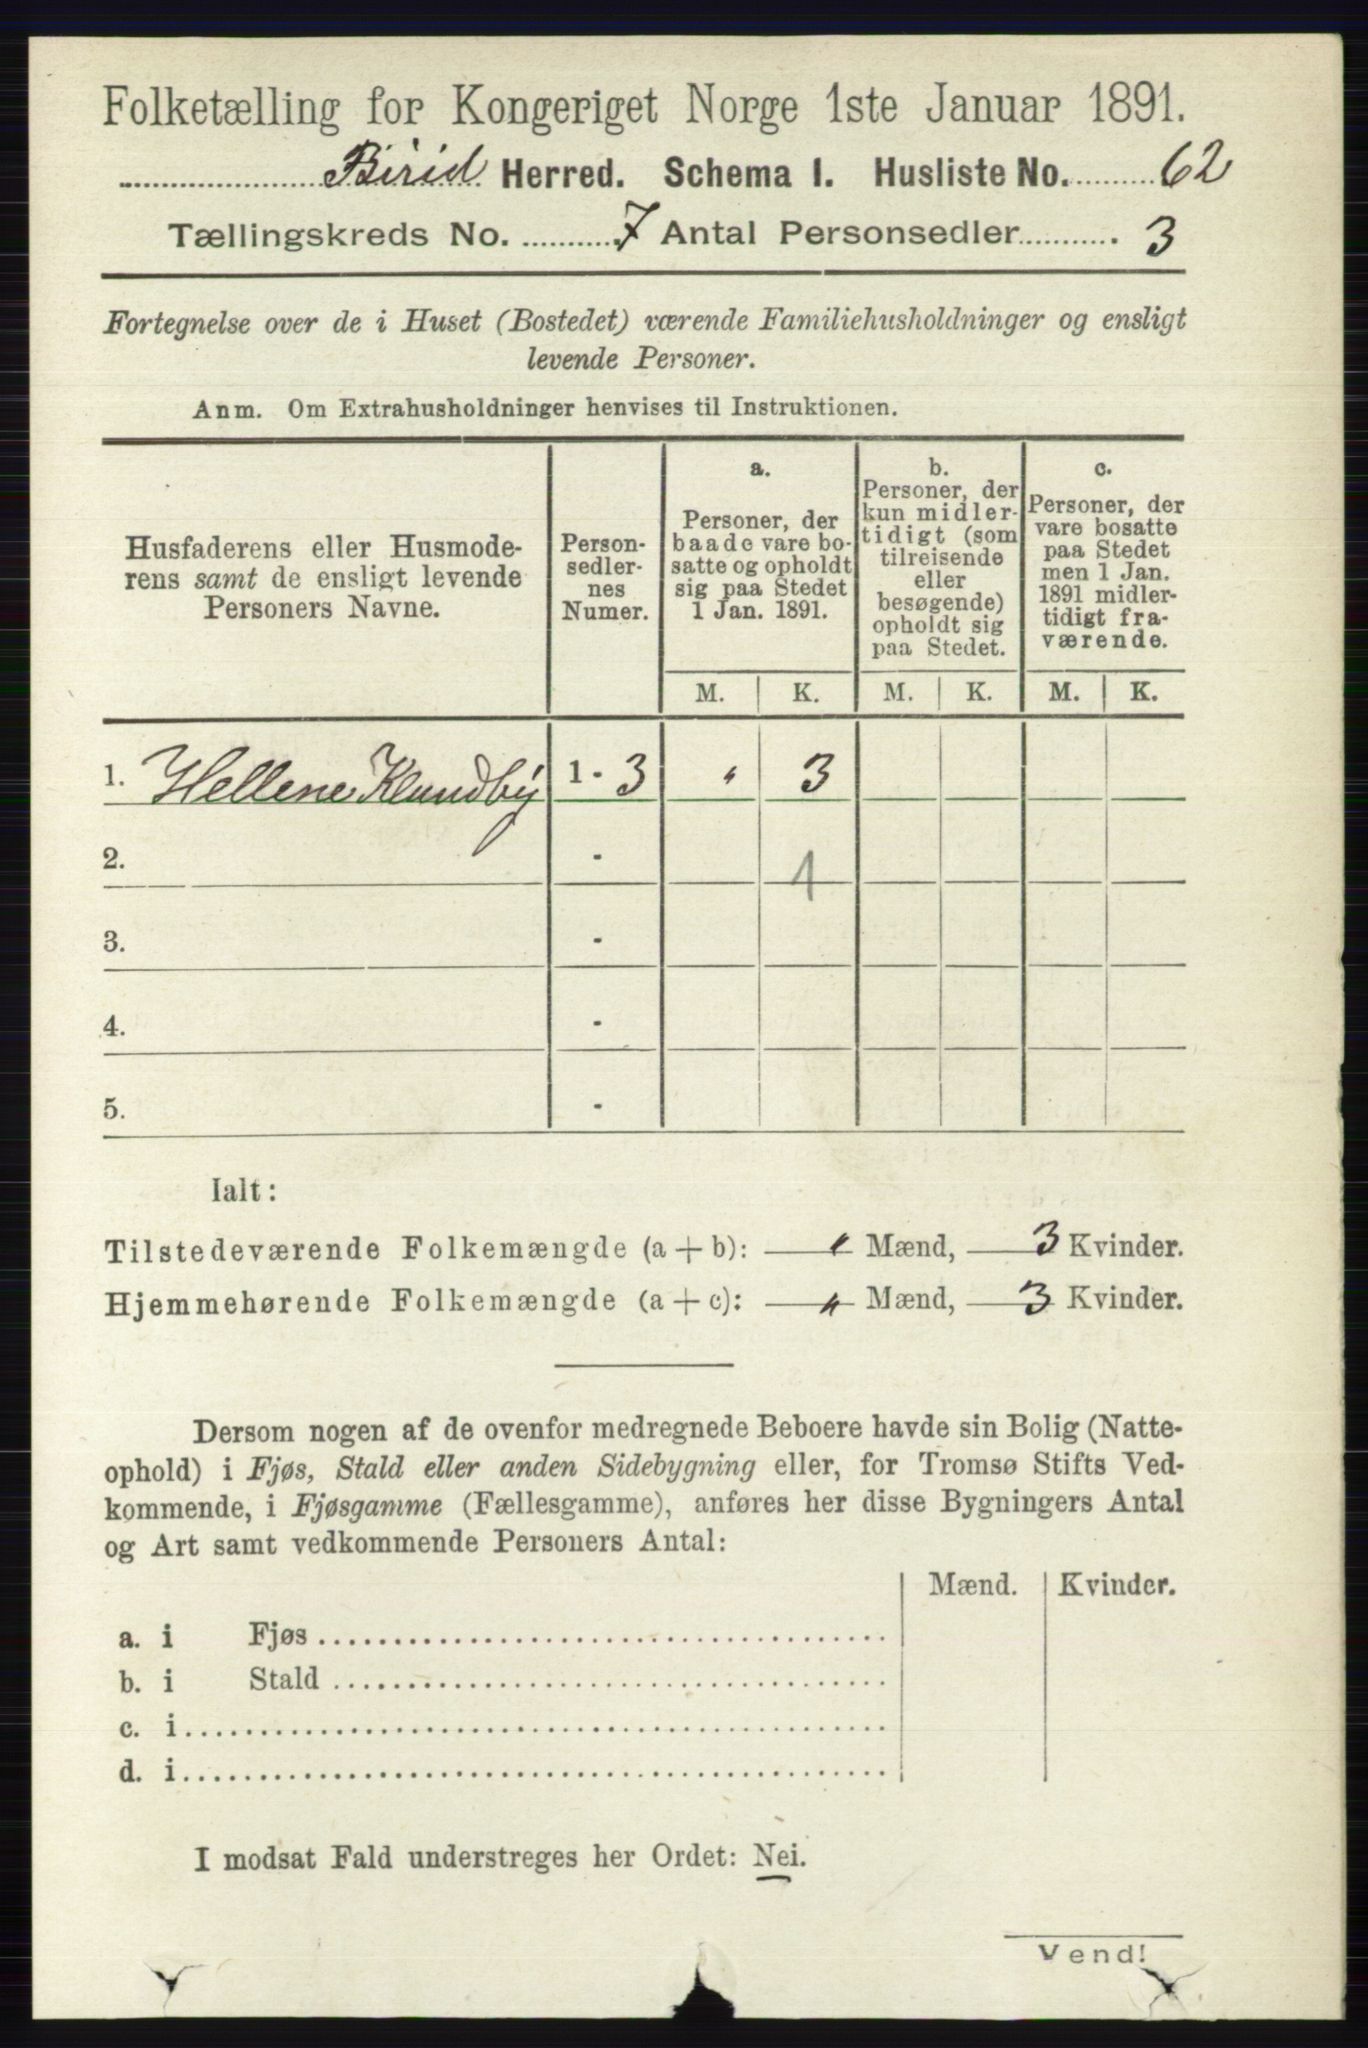 Folketælling for Kongeriget Norge 1ste Januar 1891.
Birid Herred. Schema I. Husliste No. 62
Tællingskreds No. 7 Antal Personsedler 3
Fortegnelse over de i Huset (Bostedet) værende Familiehusholdninger og ensligt
levende Personer.
Anm. Om Extrahusholdninger henvises til Instruktionen.
Husfaderens eller Husmode-
rens samt de ensligt levende
Personers Navne.
Person-
sedler-
nes
Numer.
a.
Personer, der
baade vare bo-
satte og opholdt
sig paa Stedet
1 Jan. 1891.
b.
Personer, der
kun midler-
tidigt (som
tilreisende
eller
besøgende)
opholdt sig
paa Stedet.
c.
Personer, der
vare bosatte
paa Stedet
men 1 Jan.
1891 midler-
tidigt fra-
værende.
M. K. M. K. M. K.
1. Hellene Klundby 1 - 3 " 3
2. - 1
3. -
4. -
5. -
Ialt:
Tilstedeværende Folkemængde (a + b): " Mænd, 3 Kvinder.
Hjemmehørende Folkemængde (a + c): " Mænd, 3 Kvinder.
Dersom nogen af de ovenfor medregnede Beboere havde sin Bolig (Natte-
ophold) i Fjøs, Stald eller anden Sidebygning eller, for Tromsø Stifts Ved-
kommende, i Fjøsgamme (Fællesgamme), anføres her disse Bygningers Antal
og Art samt vedkommende Personers Antal:
Mænd. Kvinder.
a. i Fjøs
b. i Stald
c. i
d. i
I modsat Fald understreges her Ordet: Nei.
Vend!